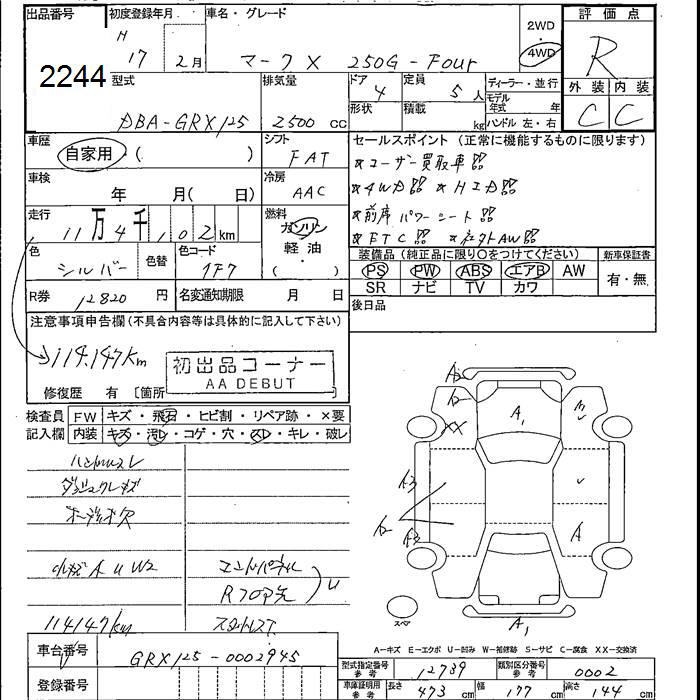 出品番号 初度登録年月 車名・グレード 評価点
2244
H 17 2月 マークX 250G-Four 2WD 4WD R
型式 排気量 ドア 4 定員 5人 ディーラー・並行 外装 内装
DBA-GRX125 2500cc 形状 積載 kg モデル年式 年 ハンドル 左・右 C C
車歴 自家用 ( ) シフト FAT セールスポイント (正常に機能するものに限ります)
★ユーザー買取車
車検 年 月( 日) 冷房 AAC ★4WD ★HID
★前席パワーシート
走行 11万4千102km 燃料 ガソリン 軽油 ( )
★ETC ★社外AW
色 シルバー 色替 色コード 1F7
装備品 (純正品に限り○をつけてください) 新車保証書
PS PW ABS エアB AW 有・無
SR ナビ TV カワ
R券 12820円 名変通知期限 月 日 後日品
注意事項申告欄(不具合内容等は具体的に記入して下さい)
114,147km
初出品コーナー
AA DEBUT
修復歴 有 [箇所 ]
検査員 FW キズ・飛石・ヒビ割・リペア跡・×要
記入欄 内装 キズ・汚レ・コゲ・穴・スレ・キレ・破レ
ハンドルスレ
オーディオ欠
小キズAUW2 エンドパネル
Rフロア先 U
114147km スタッドレスT
A2
A2 XX A1
A3
A2 A2 A
スペア A1
A-キズ E-エクボ U-凹み W-補修跡 S-サビ C-腐食 XX-交換済
車台番号 GRX125-0002945
型式指定番号 参考 12739 類別区分番号 参考 0002
登録番号 車庫証明用 参考 長さ 473cm 幅 177cm 高さ 144cm